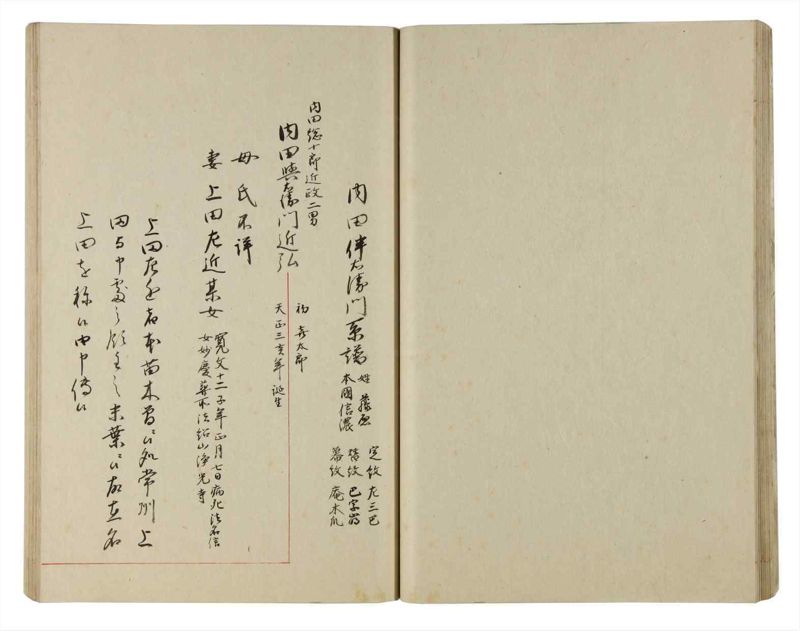 内田伴右衛門系譜
姓 藤原
本國信濃
定紋 左三巴
替紋 巴字崩
幕紋 庵木瓜
内田総十郎近政二男
内田與右衛門近弘
初 喜太郎
天正三亥年誕生
母 氏不詳
妻 上田左近某女
寛文十二子年正月七日病死法名信
女妙慶葬所法紹山浄光寺
上田左近者本苗木曽ニ候処常州上
田与申處之領主之末葉ニ候故在名
上田を称候由申傳候